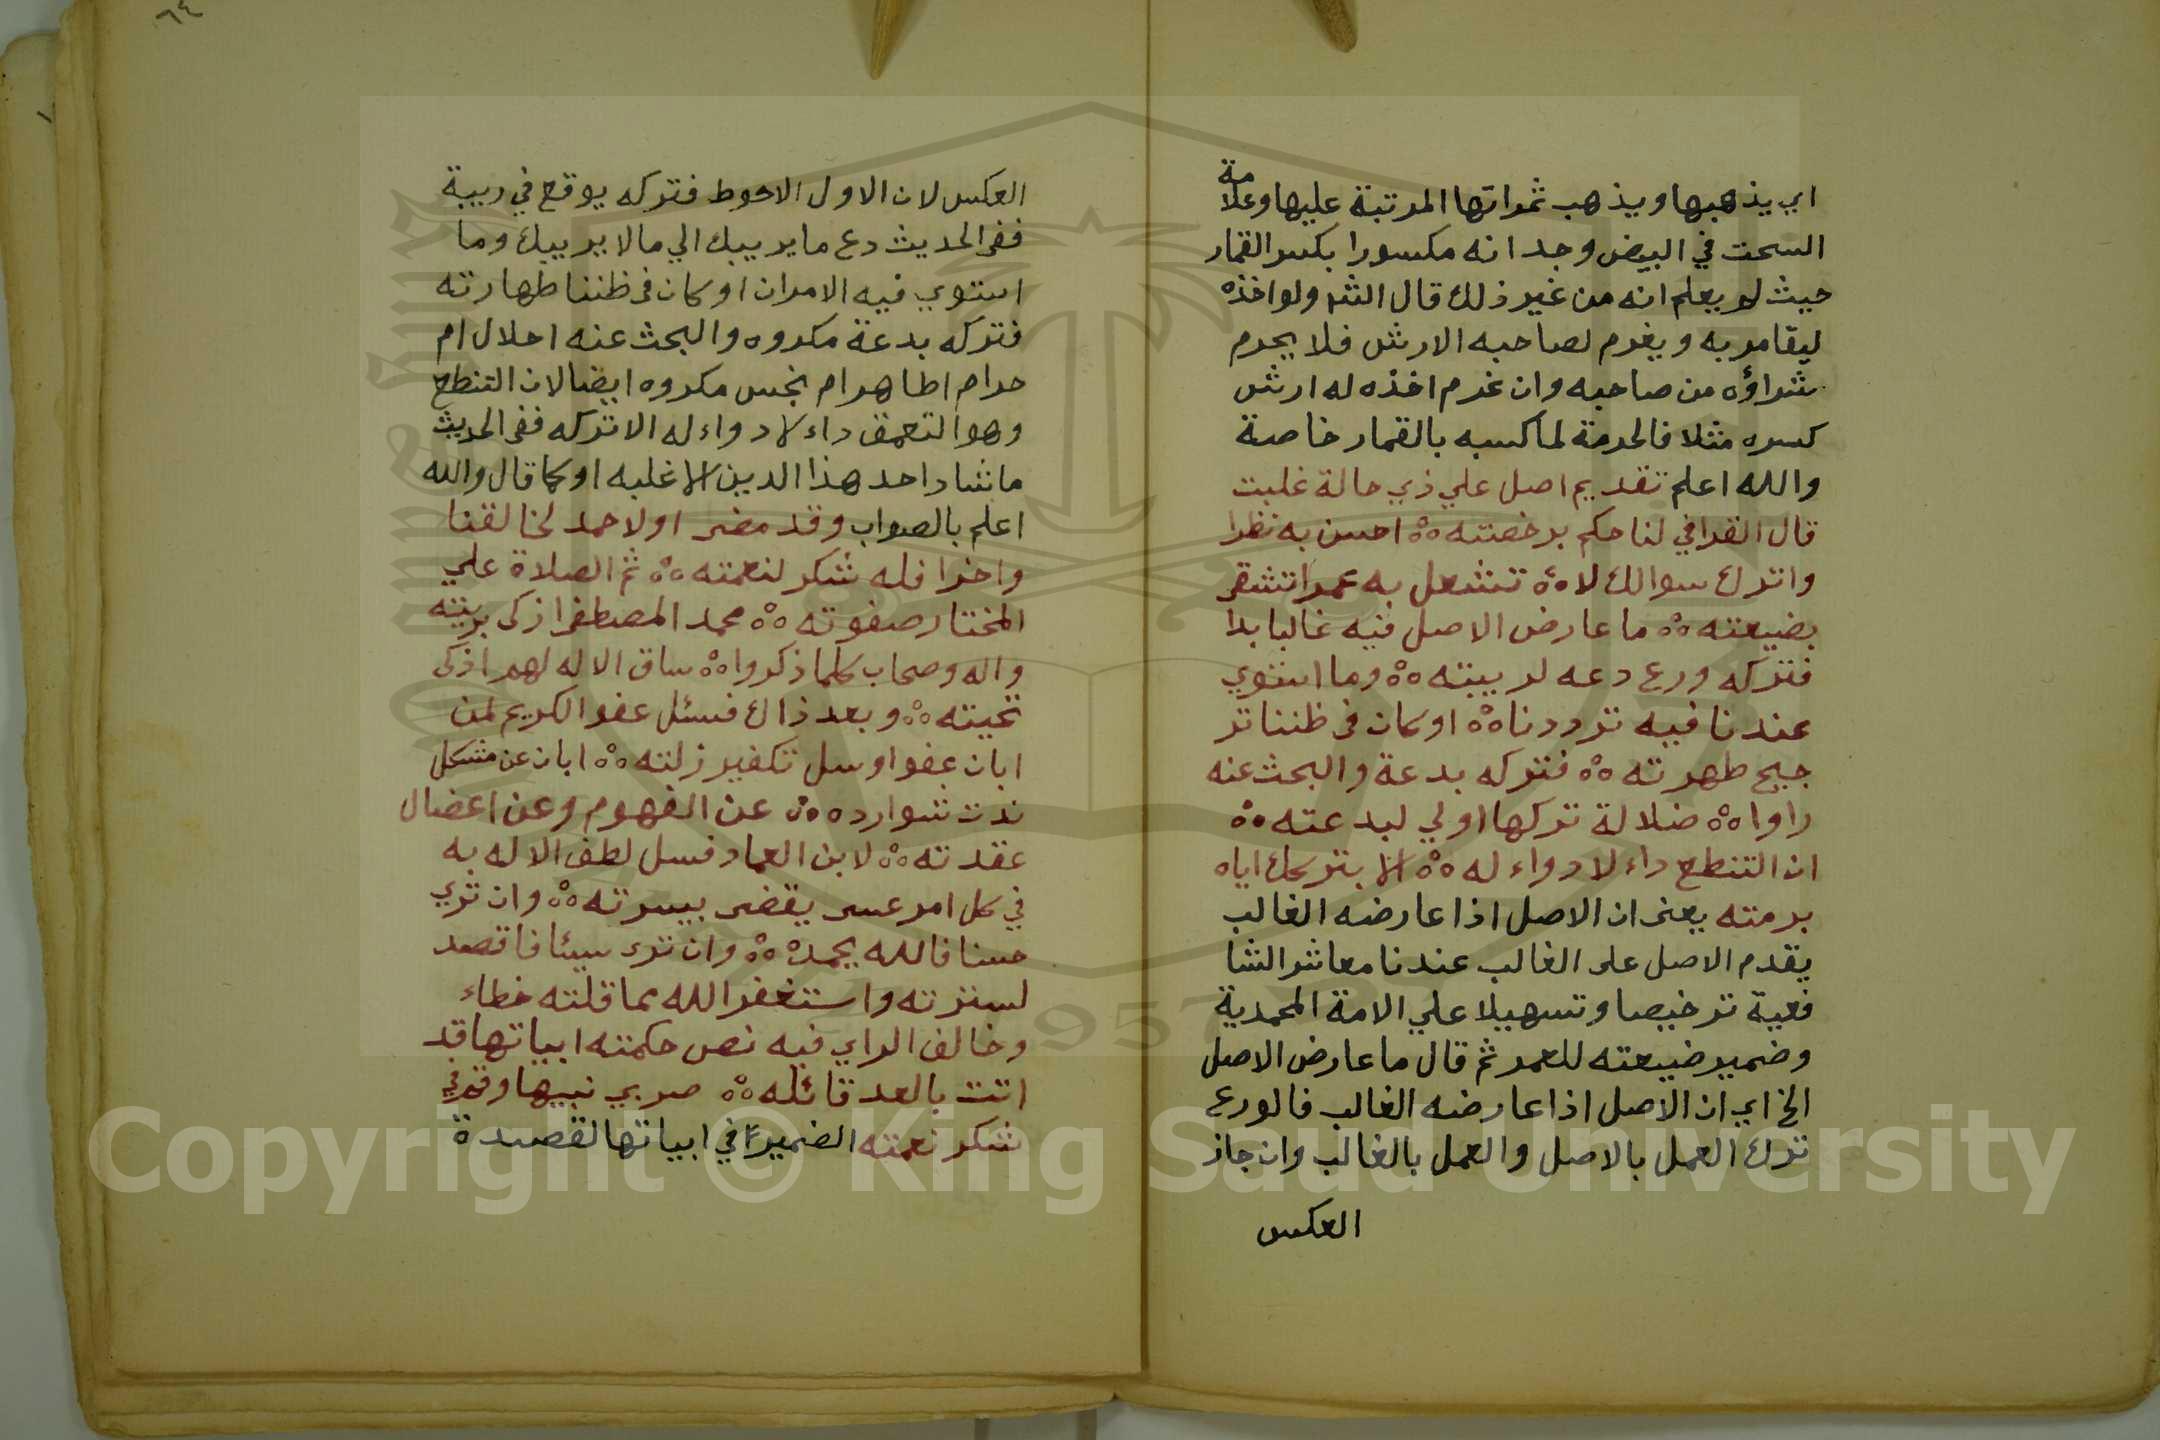 اي يذهبها ويذهب ثمراتها المرتبة عليها وعلامة
السحت في البيض وجدانه مكسورا بكسر القمار
حيث لم يعلم انه من غير ذلك قال الشم ولو اخذه
ليقامر به ويغرم لصاحبه الارش فلا يحرم
شراؤه من صاحبه وان غرم اخذه له ارش
كسره مثلا فالحرمة لما كسبه بالقمار خاصة
والله اعلم تقديم اصل علي ذي حالة غلبت
قال القرافي لنا حكم برخصته ؞ احسن به نظرا
واترك سوالك لا ؞ تشغل به عمرا تشقى
بضيعته ؞ ما عارض الاصل فيه غالبا بدا
فتركه ورع دعه لريبته ؞ وما استوي
عندنا فيه ترددنا ؞ او كان في ظننا تر
جيح طهرته ؞ فتركه بدعة والبحث عنه
راوا ؞ ضلالة تركها اولي لبدعته ؞
ان التنطع داء لا دواء له ؞ الا بتركك اياه
برمته يعني ان الاصل اذا عارضه الغالب
يقدم الاصل على الغالب عندنا معاشر الشا
فعية ترخيصا وتسهيلا علي الامة المحمدية
وضمير ضيعته للعمر ثم قال ما عارض الاصل
الخ اي ان الاصل اذا عارضه الغالب فالورع
ترك العمل بالاصل والعمل بالغالب وان جاز
العكس
٦٤
العكس لان الاول الاحوط فتركه يوقع في ريبة
ففي الحديث دع ما يريبك الي مالا يريبك وما
استوي فيه الامران او كان في ظننا طهارته
فتركه بدعة مكروه والبحث عنه احلال ام
حرام اطاهر ام نجس مكروه ايضا لان التنطع
وهو التعمق داء لا دواء له الا تركه ففي الحديث
ما شاد احد هذا الدين الا غلبه او كما قال والله
اعلم بالصواب وقد مضى اولا حمد لخالقنا
واخرا فله شكر لنعمته ؞ ثم الصلاة علي
المختار صفوته ؞ محمد المصطفى ازكى بريته
واله وصحاب كلما ذكروا ؞ ساق الاله لهم ازكى
تحيته ؞ وبعد ذاك فسئل عفو الكريم لمن
ابان عفوا وسل تكفير زلته ؞ ابان عن مشكل
ندت شوارده ؞ عن الفهوم وعن اعضال
عقدته ؞ لابن العماد فسل لطف الاله به
في كل امر عسر يقضى بيسرته ؞ وان تري
حسنا فالله يحمده ؞ وان ترى سيئا فاقصد
لسترته واستغفر الله مما قلته خطاء
وخالف الراي فيه نص حكمته ابياتها قد
اتت بالعد قائلة ؞ صربي نبيها وقم في
شكر نعمته الضمير في ابياتها لقصيدة